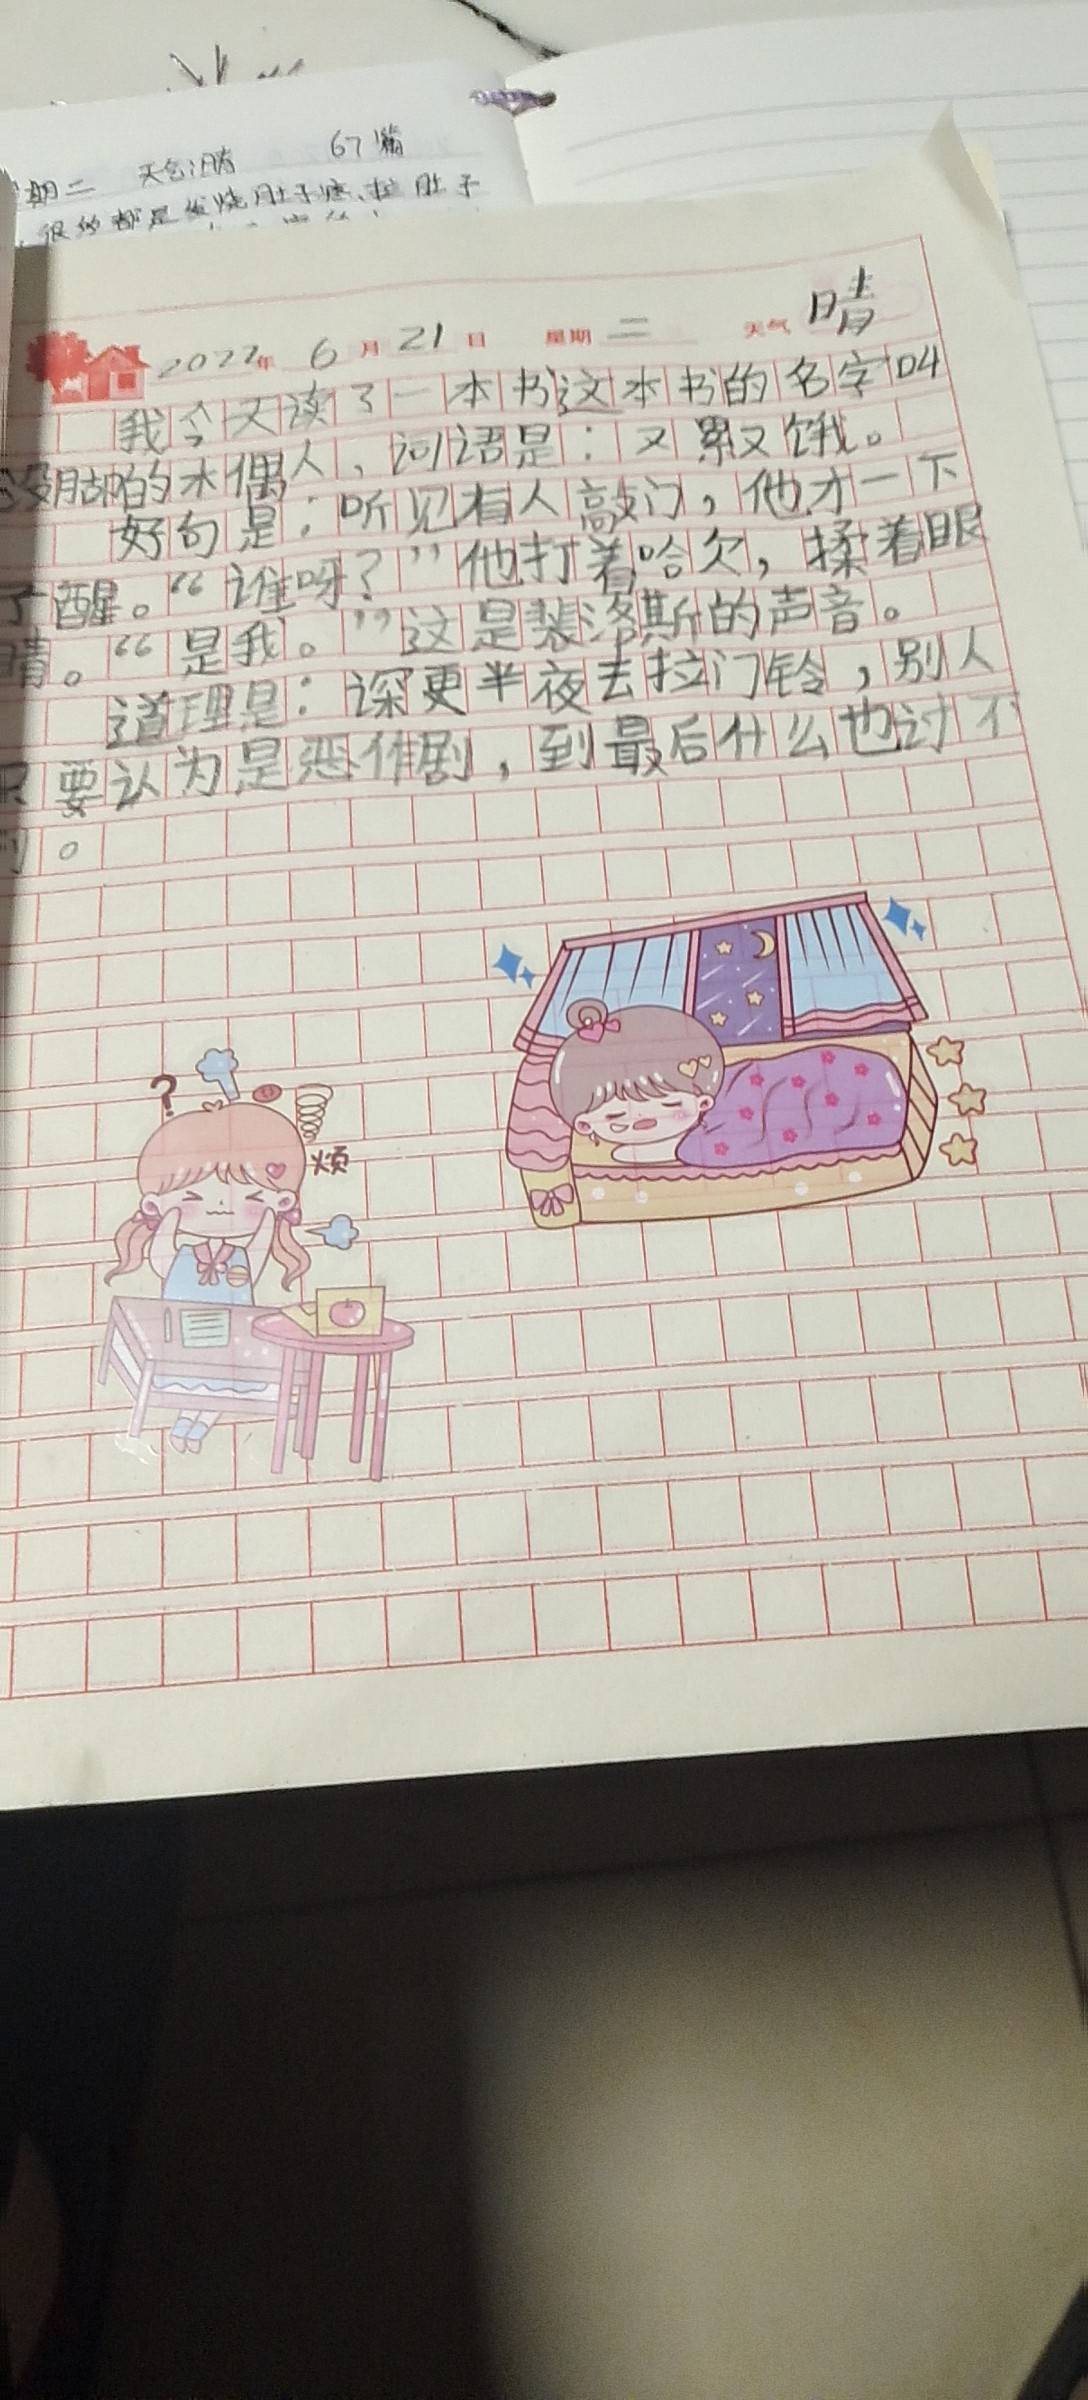 期二 天气:晴 67篇
很多都是发烧肚子疼、拉肚子
2022年 6月21日 星期二 天气 晴
我今天读了一本书这本书的名字叫
没胡的木偶人,词语是:又累又饿。
好句是:听见有人敲门,他才一下
了醒。“谁呀?”他打着哈欠,揉着眼
睛。“是我。”这是裴洛斯的声音。
道理是:深更半夜去拉门铃,别人
只要认为是恶作剧,到最后什么也讨不
。
?
烦